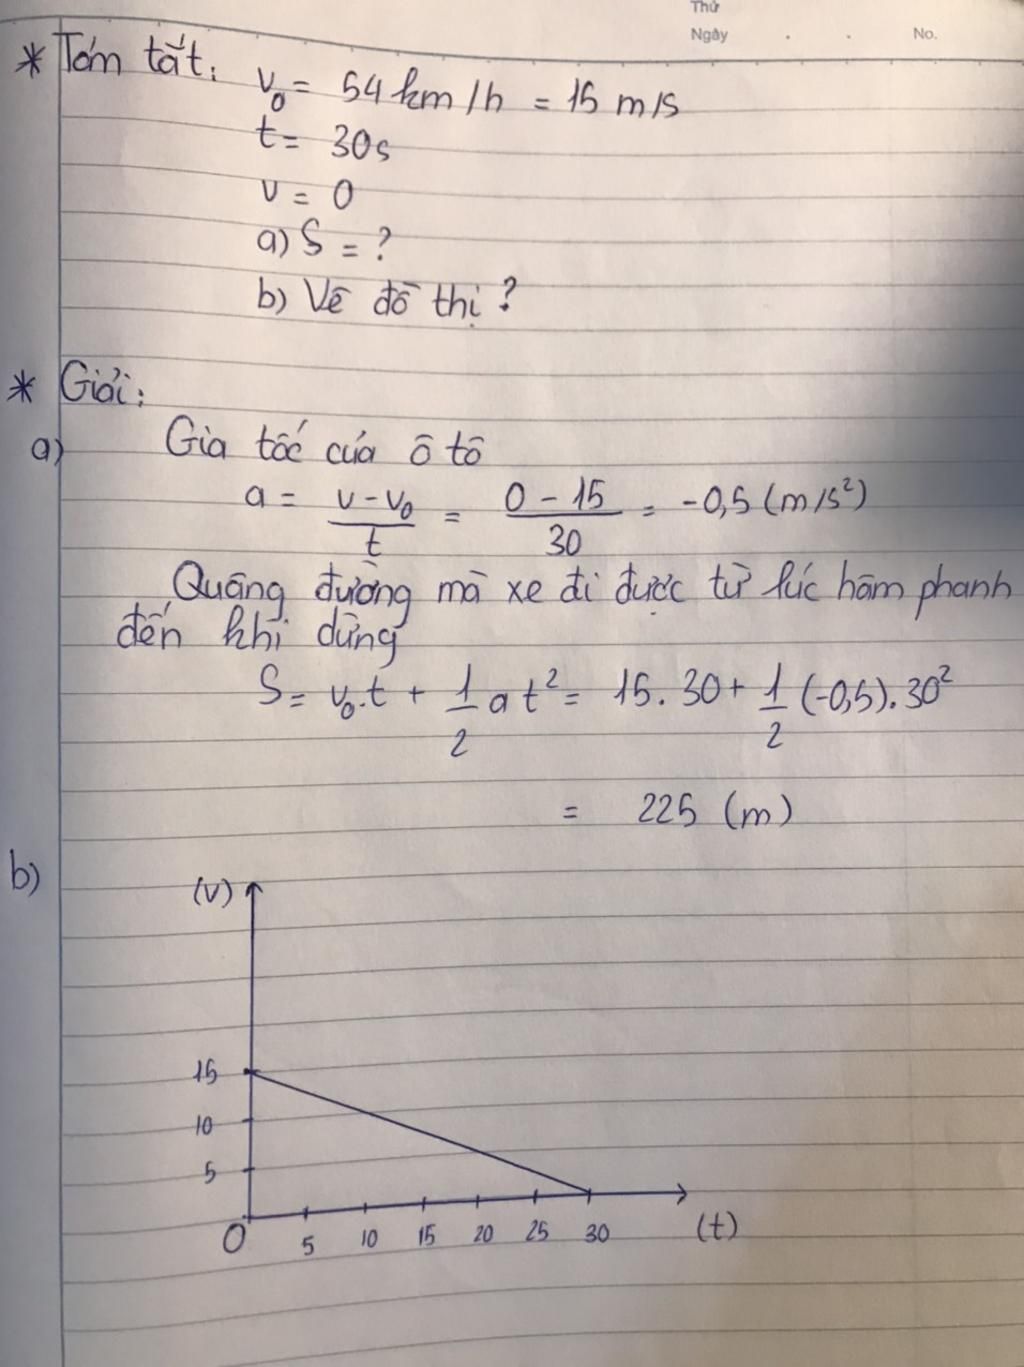 Thứ
Ngày . . No.
* Tóm tắt:
v₀ = 54 km/h = 15 m/s
t = 30s
v = 0
a) S = ?
b) Vẽ đồ thị ?
* Giải:
a) Gia tốc của ô tô
a = (v - v₀)/t = (0 - 15)/30 = -0,5 (m/s²)
Quãng đường mà xe đi được từ lúc hãm phanh
đến khi dừng
S = v₀.t + 1/2 a t² = 15. 30 + 1/2 (-0,5). 30²
= 225 (m)
b)
(v)
15
10
5
O 5 10 15 20 25 30 (t)